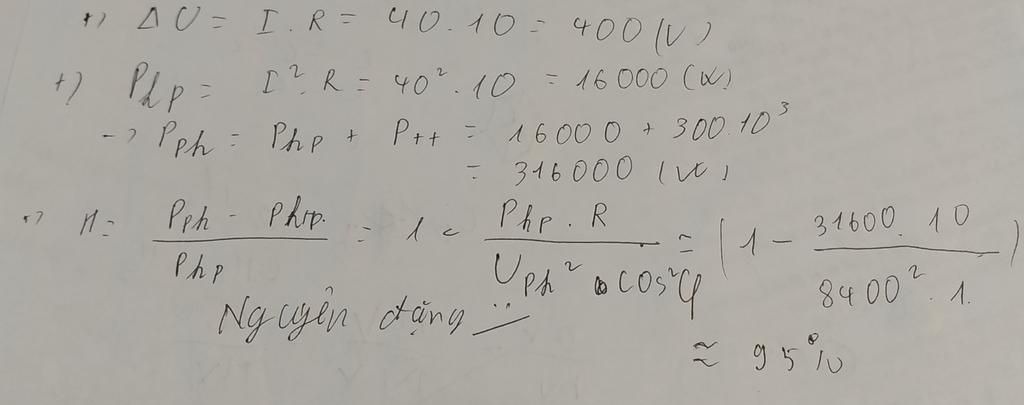 +) ΔU = I . R = 40 . 10 = 400 (V)
+) Php = I². R = 40² . 10 = 16000 (W)
-> Pph = Php + P++ = 16000 + 300.10³
= 316000 (W)
+) H = (Pph - Php) / Php = 1 - (Php . R) / (Uph² . cos²φ) = (1 - (31600. 10) / (8400² . 1.))
Nguyên đặng
≈ 95%